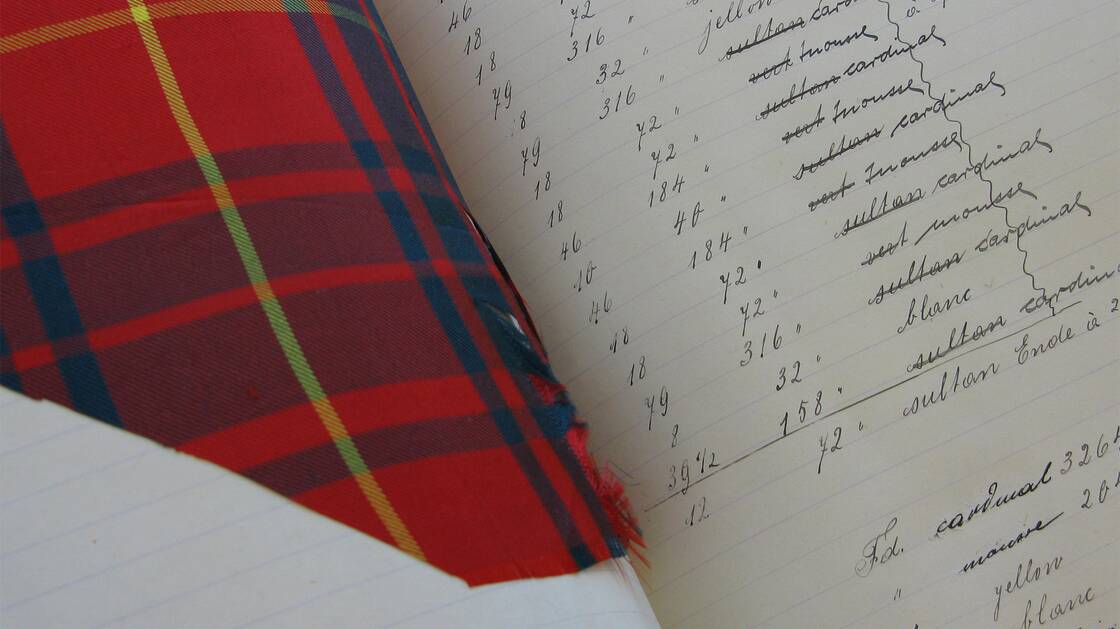 46
18
18 72 "
79 316 "
8 32 " jellow
79 316 " sultan card
18 72 " vert mousse
18 72 " sultan cardinal
46 184 " vert mousse
10 40 " sultan cardinal
46 184 " vert mousse
18 72 " sultan cardinal
18 72 " vert mousse
79 316 " sultan cardinal
8 32 " blanc
39 1/2 158 " sultan cardin
12 72 " sultan Ende à 2
Fd. cardinal 326
" mousse 20
yellow
blanc